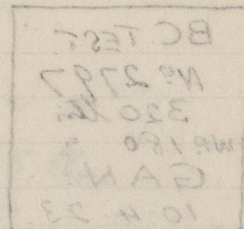 BC TEST.
No 2797
320 lb.
WP. 180 "
G.A.N.
10 4 23